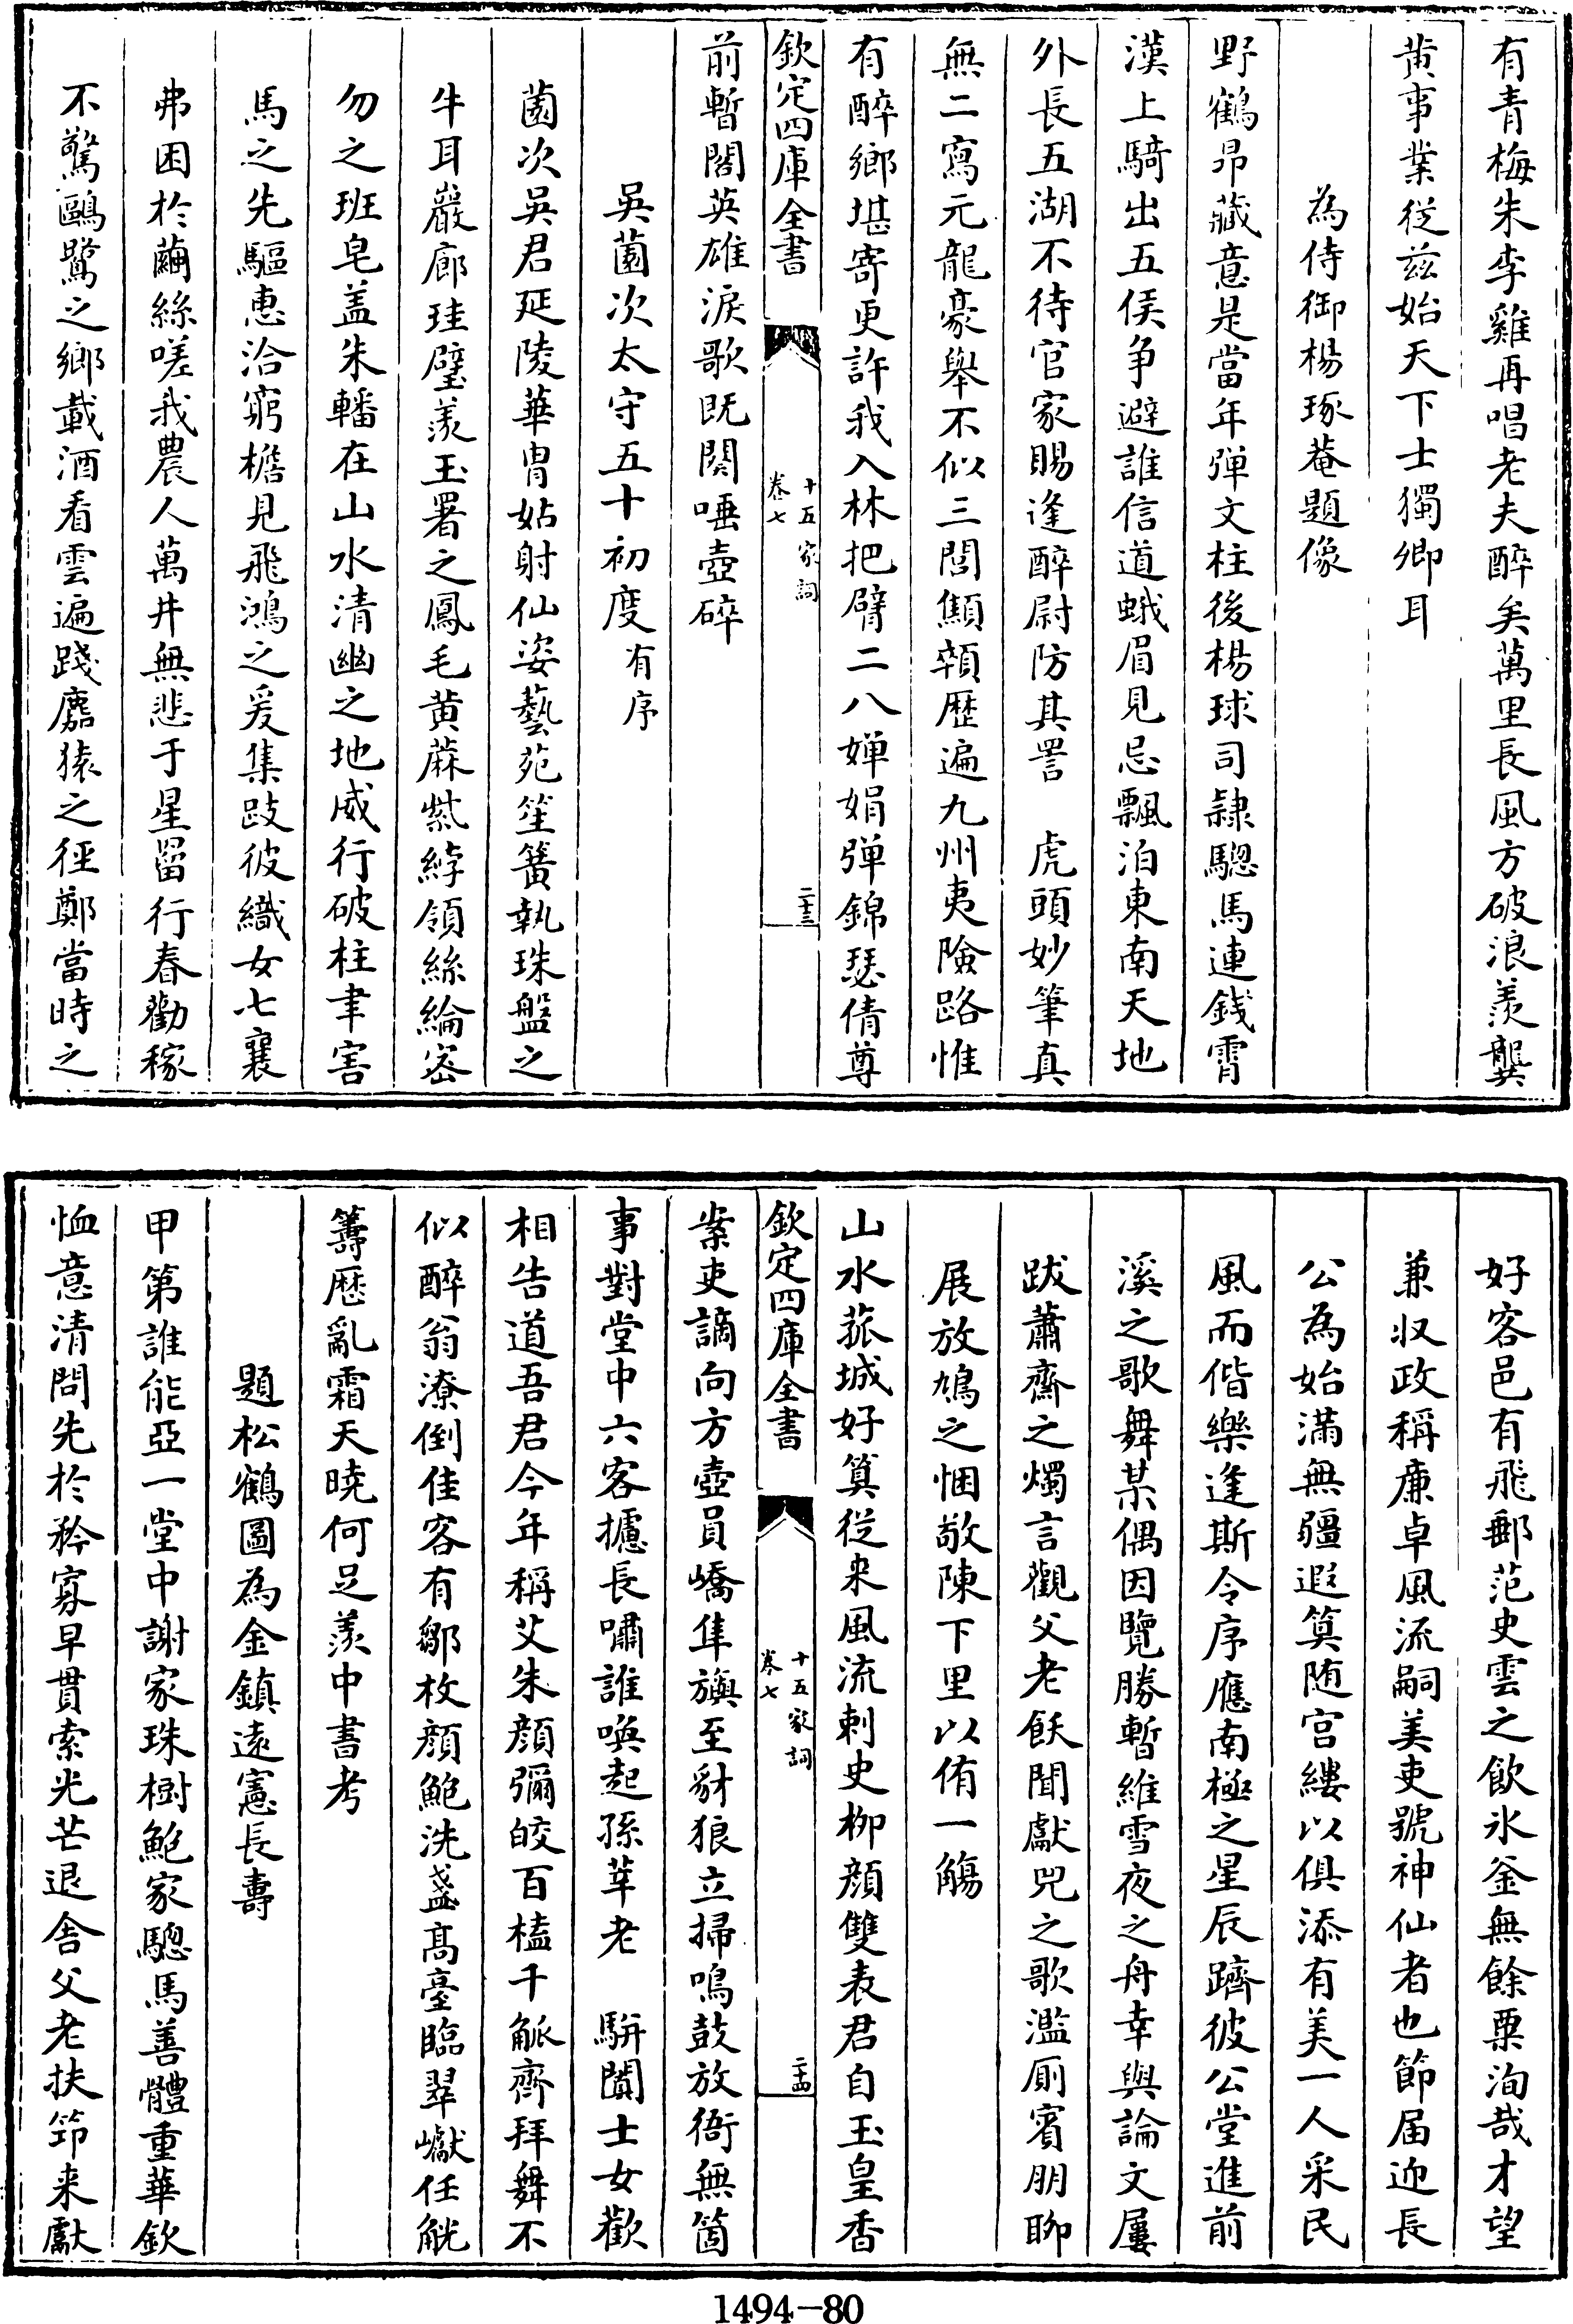 有青梅朱李雞再唱老夫醉矣萬里長風方破浪羨龔
黄事業從兹始天下士獨卿耳
為侍御楊琢菴題像
野鶴昂藏意是當年彈文柱後楊球司隸驄馬連錢霄
漢上騎出五侯争避誰信道蛾眉見忌飄泊東南天地
外長五湖不待官家賜逢醉尉防其詈　虎頭妙筆真
無二寫元龍豪舉不似三閭顦顇歴遍九州夷險路惟
有醉鄉堪寄更許我入林把臂二八嬋娟彈錦瑟倩尊
欽定四庫全書
十五家詞
卷七
二十三
前暫閣英雄淚歌既闋唾壺碎
吳薗次太守五十初度有序
薗次吳君延陵華胄姑射仙姿藝苑笙簧執珠盤之
牛耳巖廊珪璧羨玉署之鳳毛黄蔴紫綍領絲綸宻
勿之班皂盖朱轓在山水清幽之地威行破柱聿害
馬之先驅惠洽窮檐見飛鴻之爰集跂彼織女七襄
弗困於繭絲嗟我農人萬井無悲于星罶行春勸稼
不驚鷗鷺之鄉載酒看雲遍踐麏猿之徑鄭當時之
好客邑有飛郵范史雲之飲氷釡無餘粟洵哉才望
兼収政稱亷卓風流嗣美吏號神仙者也節届迎長
公為始滿無疆遐筭随宫縷以俱添有美一人采民
風而偕樂逢斯令序應南極之星辰躋彼公堂進前
溪之歌舞某偶因覽勝暫維雪夜之舟幸與論文屢
跋蕭齋之燭言觀父老飫聞獻兕之歌濫厠賓朋聊
展放鳩之悃敢陳下里以侑一觴
山水菰城好算從来風流刺史柳顔雙表君自玉皇香
欽定四庫全書
十五家詞
卷七
二十四
案吏謫向方壺員嶠隼旟至豺狼立掃鳴鼓放衙無箇
事對堂中六客攄長嘯誰喚起孫莘老　駢闐士女歡
相告道吾君今年稱艾朱顔彌皎百榼千觚齊拜舞不
似醉翁潦倒佳客有鄒枚顔鮑洗盞髙臺臨翠巘任觥
籌歴亂霜天曉何足羨中書考
題松鶴圖為金鎮遠憲長壽
甲第誰能亞一堂中謝家珠樹鮑家驄馬善體重華欽
恤意清問先於矜寡早貫索光芒退舍父老扶筇来獻
1494-80